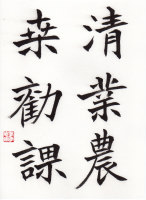 清業農
桒勸課